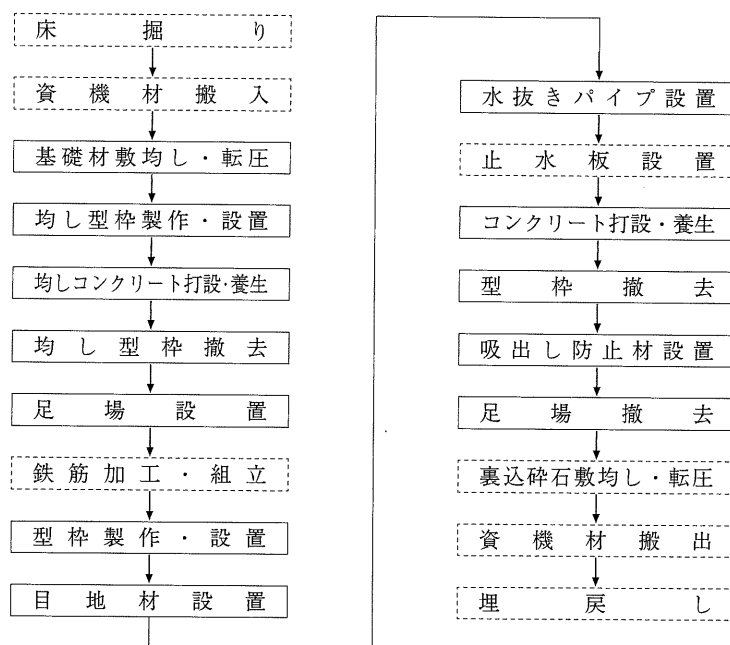 床掘り
資機材搬入
基礎材敷均し・転圧
均し型枠製作・設置
均しコンクリート打設・養生
均し型枠撤去
足場設置
鉄筋加工・組立
型枠製作・設置
目地材設置
水抜きパイプ設置
止水板設置
コンクリート打設・養生
型枠撤去
吸出し防止材設置
足場撤去
裏込砕石敷均し・転圧
資機材搬出
埋戻し